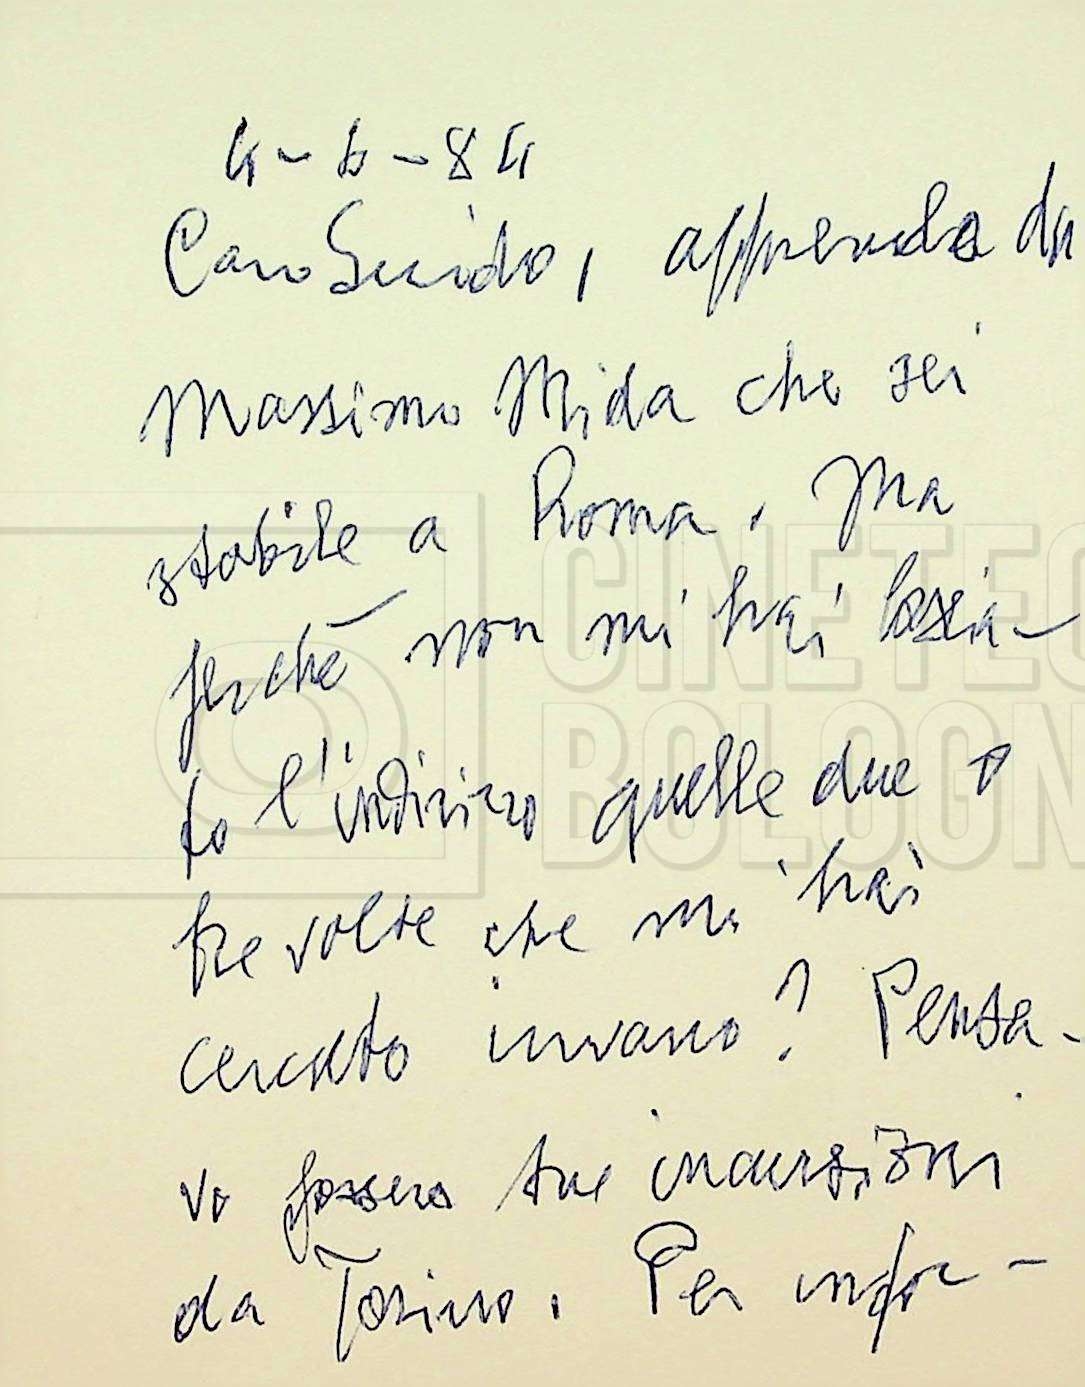 4-6-84
Caro Guido, apprendo da
Massimo Mida che sei
stabile a Roma. Ma
perché non mi hai lascia-
to l'indirizzo quelle due o
tre volte che mi hai
cercato invano? Pensa-
vo fossero tue incursioni
da Torino. Per infor-
CINETEC
BOLOGN